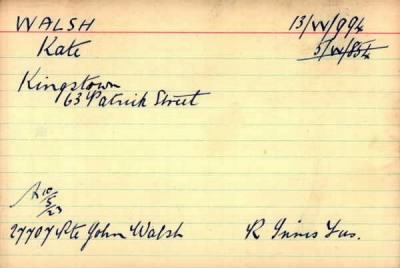 WALSH 13/W/994
Kate 5/W/854
Kingstown
63 Patrick Street
10/5/23
27707 Pte John Walsh R Innis Fus.